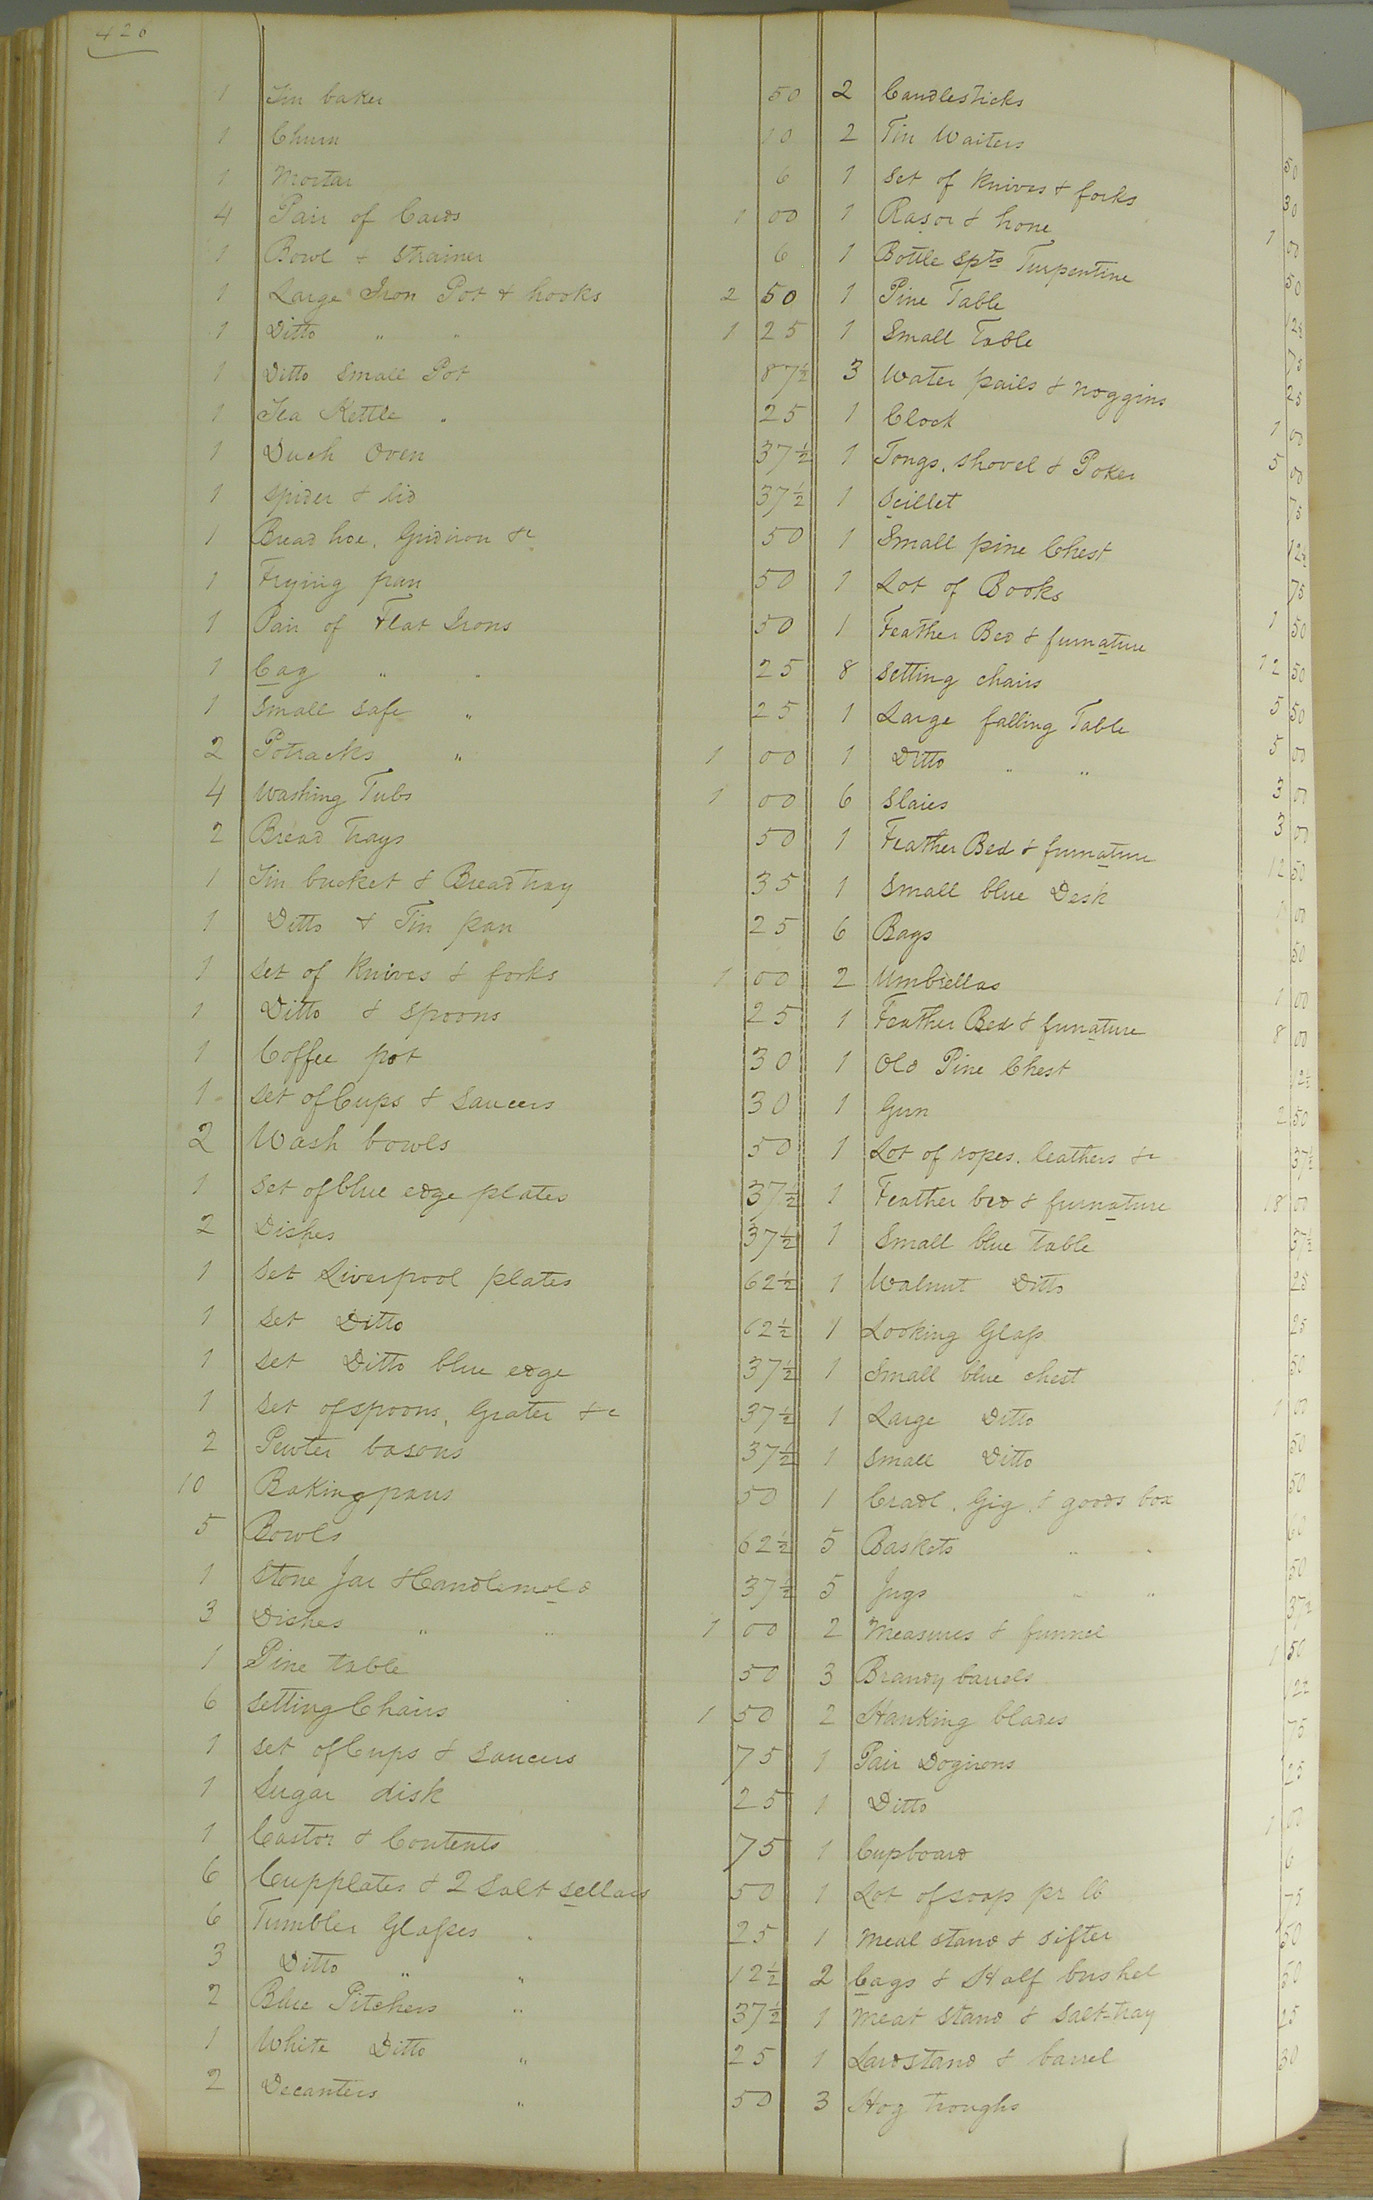 426
1 Tin baker 50
1 Churn 10
1 Mortar 6
4 Pair of Cards 1 00
1 Bowl & Strainer 6
1 Large Iron Pot & hooks 2 50
1 Ditto " " 1 25
1 Ditto Small Pot 87½
1 Tea Kettle " 25
1 Duch Oven 37½
1 Spider & lid 37½
1 Bread hoe, Gridiron &c 50
1 Frying pan 50
1 Pair of Flat Irons 50
1 Cag " " 25
1 Small Safe " 25
2 Potracks " 1 00
4 Washing Tubs 1 00
2 Bread trays 50
1 Tin bucket & Bread tray 35
1 Ditto & Tin pan 25
1 Set of Knives & forks 1 00
1 Ditto & Spoons 25
1 Coffee pot 30
1 Set of Cups & Saucers 30
2 Wash bowls 50
1 Set of blue edge plates 37½
2 Dishes 37½
1 Set Liverpool plates 62½
1 Set Ditto 62½
1 Set Ditto blue edge 37½
1 Set of spoons, Grater &c 37½
2 Pewter basons 37½
10 Baking pans 50
5 Bowls 62½
1 Stone Jar & Candlemold 37½
3 Dishes " " 1 00
1 Pine table 50
6 Setting Chairs 1 50
1 Set of Cups & Saucers 75
1 Sugar disk 25
1 Castor & Contents 75
6 Cupplates & 2 Salt Sellars 50
6 Tumbler Glasses " 25
3 Ditto " " 12½
2 Blue Pitchers " 37½
1 White Ditto " 25
2 Decanters " 50
2 Candlesticks 50
2 Tin Waiters 30
1 Set of Knives & forks 1 00
1 Rasor & hone 50
1 Bottle Spts Turpentine 12½
1 Pine Table 75
1 Small Table 25
3 Water pails & noggins 1 00
1 Clock 5 00
1 Tongs, Shovel & Poker 75
1 Scillet 12½
1 Small pine Chest 75
1 Lot of Books 1 50
1 Feather Bed & furnature 12 50
8 Setting chairs 5 50
1 Large falling Table 5 00
1 Ditto " " 3 00
6 Slaies 3 00
1 Feather Bed & furnature 12 50
1 Small blue Desk 1 00
6 Bags 50
2 Umbrellas 1 00
1 Feather Bed & funature 8 00
1 Old Pine Chest 12½
1 Gun 2 50
1 Lot of ropes, leathers &c 37½
1 Feather bed & furnature 18 00
1 Small blue table 37½
1 Walnut Ditto 25
1 Looking Glass 25
1 Small blue chest 50
1 Large Ditto 1 00
1 Small Ditto 50
1 Cradl, Gig, & goods box 50
5 Baskets " " 60
5 Jugs " " 50
2 Measures & funnel 37½
3 Brandy barrels 1 50
2 Hanking blades 12½
1 Pair Dogirons 75
1 Ditto 25
1 Cupboard 1 00
1 Lot of soap pr lb 6
1 Meal stand & sifter 75
2 Cags & Half bushel 50
1 Meat Stand & Salt-tray 50
1 Lardstand & barrel 25
3 Hog troughs 30